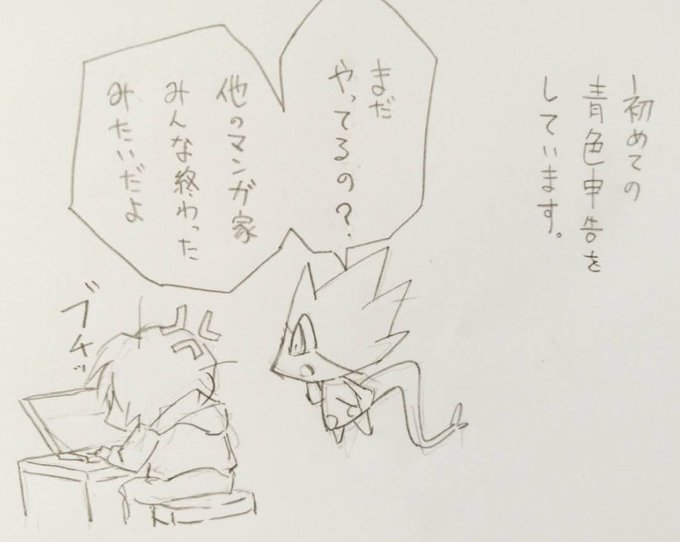 初めての
青色申告を
しています。
まだ
やってるの？
他のマンガ家
みんな終わった
みたいだよ
ブチッ